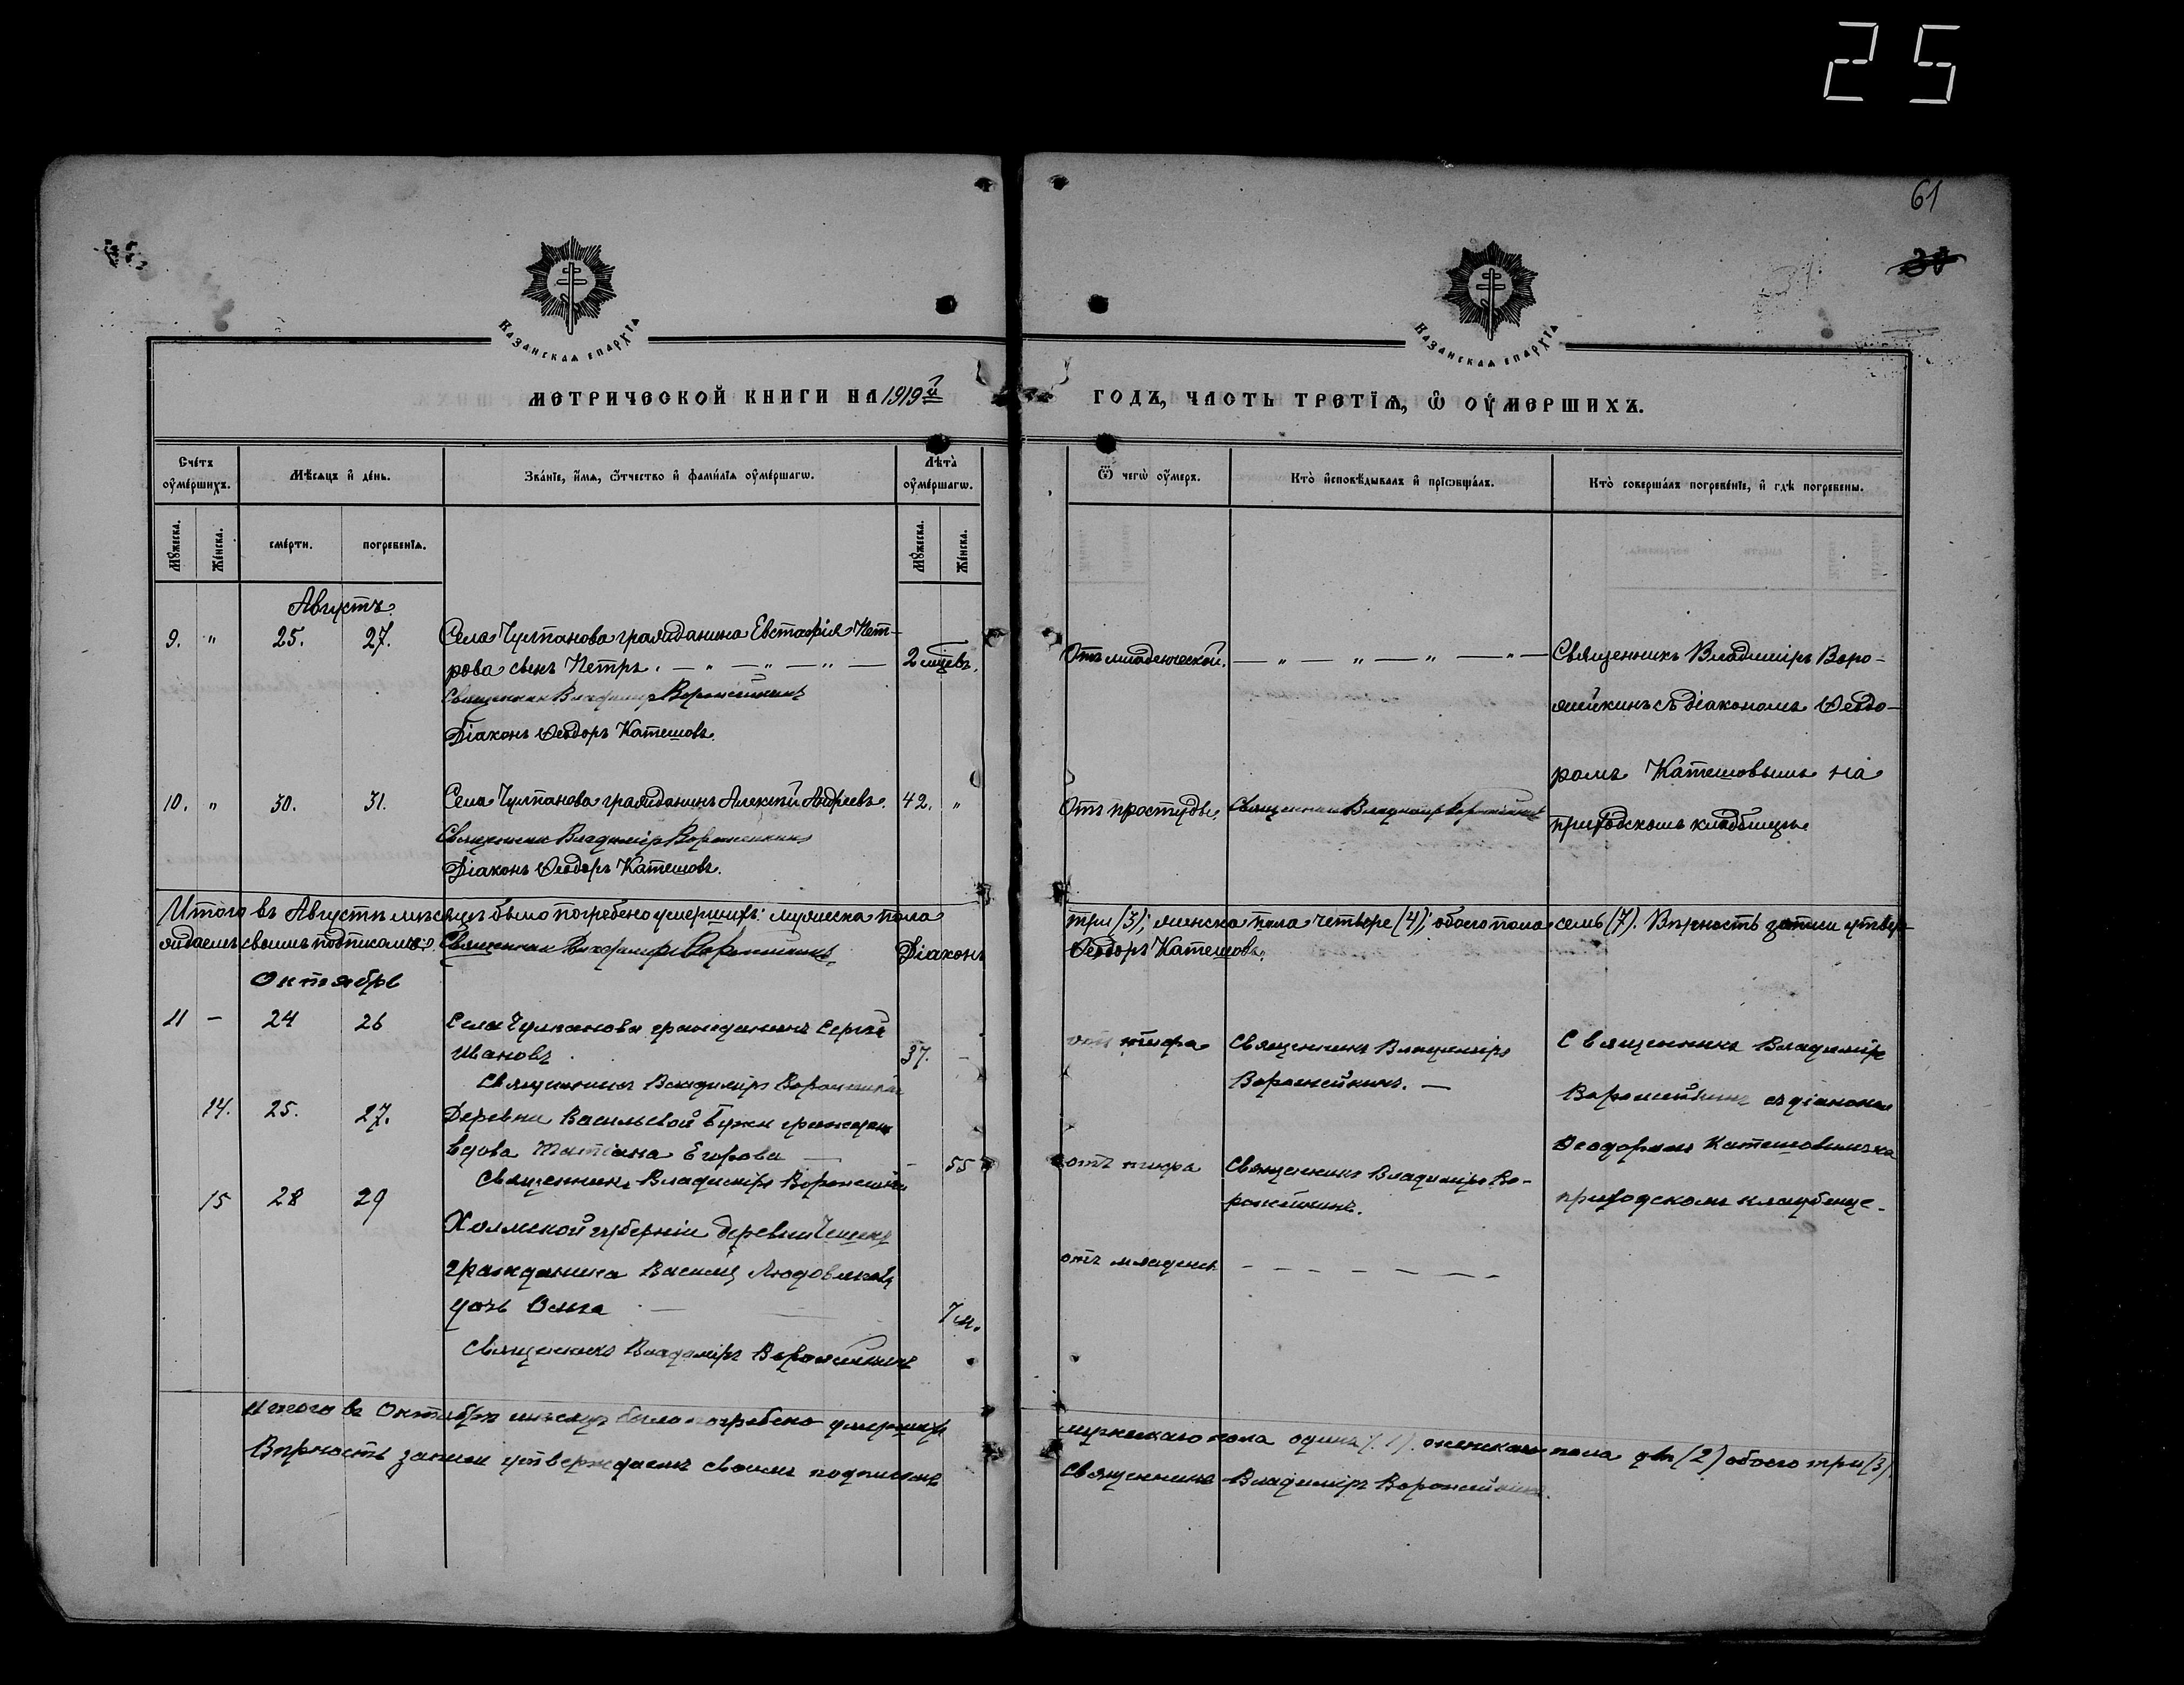 25
61
30
КАЗАНСКАЯ ЕПАРХІЯ
КАЗАНСКАЯ ЕПАРХІЯ
МЕТРИЧЕСКОЙ КНИГИ НА 1919 й
ГОДЪ, ЧАСТЬ ТРЕТІЯ, Ѿ ОУМЕРШИХЪ.
Счетъ оумершихъ.
Мѣсяцъ и день.
Званіе, имя, отчество и фамилія оумершагѡ.
Лѣта оумершагѡ.
Ѿ чегѡ оумеръ.
Кто исповѣдывалъ и пріобщалъ.
Кто совершалъ погребеніе, и гдѣ погребены.
Мужеска.
Женска.
смерти.
погребенія.
Мужеска.
Женска.
Августъ.
9. " 25. 27. Села Чулпанова гражданина Евстафія Пет-
рова сынъ Петръ. 2 мцевъ.
Священник Владимир Воронейкинъ
Діаконъ Ѳеодоръ Катешовъ.
Отъ младенческой. — " — " — " — " —
Священникъ Владиміръ Воро-
жейкинъ съ діакономъ Ѳеодо-
ромъ Катешовымъ на
приходскомъ кладбищѣ
10. " 30. 31. Села Чулпанова гражданинъ Алексѣй Андреевъ. 42. "
Священник Владимір Ворожейкинъ
Діаконъ Ѳеодоръ Катешовъ.
Отъ простуды. Священник Владимір Ворожейкинъ
Итого въ Августѣ мѣсяцѣ было погребено умершихъ: мужеска пола
три (3); женска пола четыре (4); обоего пола семь (7). Вѣрность записи утвер-
ждаемъ своимъ подписомъ: Священник Владимир Ворожейкинъ. Діаконъ
Ѳеодоръ Катешовъ.
Октябрь
11 — 24 26 Села Чулпанова гражданинъ Сергѣй
Ивановъ. 37. —
Священникъ Владиміръ Ворожейкинъ
отъ тифа Священникъ Владиміръ
Ворожейкинъ. —
Священникъ Владиміръ
Ворожейкинъ съ діаконом
Ѳеодоромъ Катешовымъ на
приходскомъ кладбище.
14. 25. 27. Деревни Васильевой Бужи граждан
вдова Татіана Егорова — 55
Священникъ Владиміръ Ворожейкинъ
отъ тифа Священникъ Владиміръ Во-
рожейкинъ.
15 28 29
Холмской губерніи деревни
гражданина Василія
дочь Ольга 7 м.
Священникъ Владиміръ Ворожейкинъ
отъ младенч — — — — — — —
Итого въ Октябрѣ мѣсяцѣ было погребено умершихъ
мужескаго пола одинъ (1). женскаго пола двѣ (2) обоего три (3).
Вѣрность записи утверждаемъ своимъ подписомъ
Священникъ Владиміръ Ворожейкинъ.